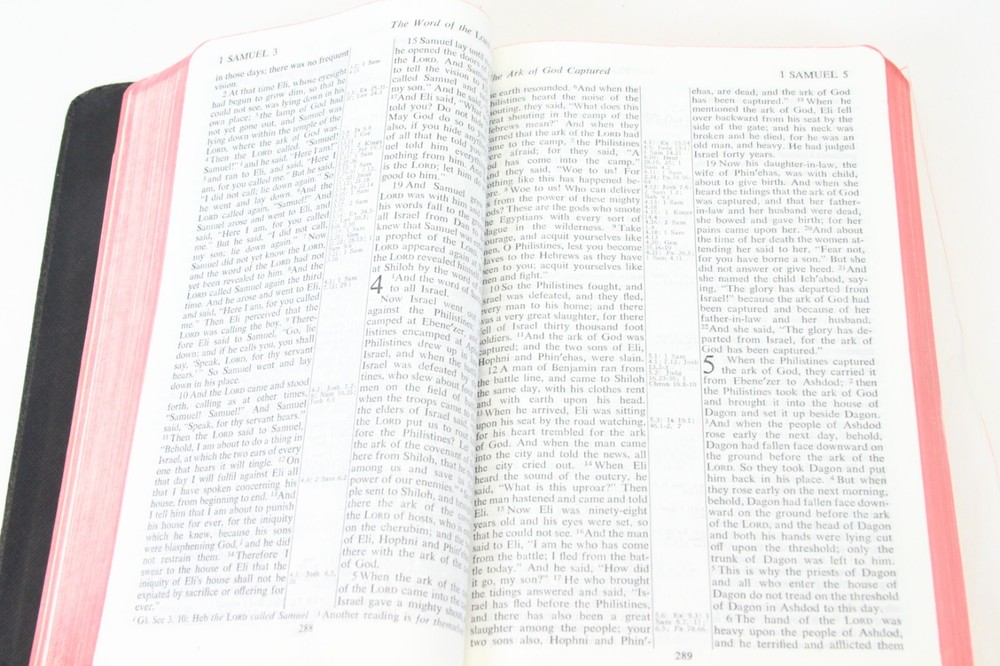 1 SAMUEL 3
The Word of the LORD
in those days; there was no frequent
vision.
2 At that time Eli, whose eyesight
had begun to grow dim, so that he
could not see, was lying down in his
own place; ³the lamp of God had
not yet gone out, and Samuel was
lying down within the temple of the
LORD, where the ark of God was.
⁴Then the LORD called, "Samuel!
Samuel!" and he said, "Here I am!"
⁵and ran to Eli, and said, "Here I
am, for you called me." But he said,
"I did not call; lie down again." So
he went and lay down. ⁶And the
LORD called again, "Samuel!" And
Samuel arose and went to Eli, and
said, "Here I am, for you called
me." But he said, "I did not call,
my son; lie down again." ⁷Now
Samuel did not yet know the LORD,
and the word of the LORD had not
yet been revealed to him. ⁸And the
LORD called Samuel again the third
time. And he arose and went to Eli,
and said, "Here I am, for you called
me." Then Eli perceived that the
LORD was calling the boy. ⁹There-
fore Eli said to Samuel, "Go, lie
down; and if he calls you, you shall
say, 'Speak, LORD, for thy servant
hears.'" So Samuel went and lay
down in his place.
10 And the LORD came and stood
forth, calling as at other times,
"Samuel! Samuel!" And Samuel
said, "Speak, for thy servant hears."
¹¹Then the LORD said to Samuel,
"Behold, I am about to do a thing in
Israel, at which the two ears of every
one that hears it will tingle. ¹²On
that day I will fulfil against Eli all
that I have spoken concerning his
house, from beginning to end. ¹³And
I tell him that I am about to punish
his house for ever, for the iniquity
which he knew, because his sons
were blaspheming God, and he did
not restrain them. ¹⁴Therefore I
swear to the house of Eli that the
iniquity of Eli's house shall not be
expiated by sacrifice or offering for
ever."
15 Samuel lay until
he opened the doors
the LORD. And Sam
to tell the vision to
called Samuel and
my son." And he said
¹⁷And Eli said, "Wh
told you? Do not hid
May God do so to
also, if you hide any
of all that he told you
uel told him every
nothing from him. An
is the LORD; let him
good to him."
19 And Samuel grew
LORD was with him and
his words fall to the g
all Israel from Dan to
knew that Samuel was
a prophet of the LORD
LORD appeared again at
LORD revealed himself
at Shiloh by the word of
4 ¹And the word of
to all Israel.
Now Israel went out
against the Philistines
camped at Ebene'zer,
listines encamped at
Philistines drew up
Israel, and when the
Israel was defeated by
tines, who slew about fo
men on the field of
when the troops came
the elders of Israel said
the LORD put us to rout
fore the Philistines? Le
the ark of the covenant
here from Shiloh, that he
among us and save us
power of our enemies." ⁴
ple sent to Shiloh, and br
there the ark of the co
the LORD of hosts, who is
on the cherubim; and the
of Eli, Hophni and Phin'e
there with the ark of the
of God.
5 When the ark of the
of the LORD came into the
Israel gave a mighty shou
Gk See 3. 10: Heb the LORD called Samuel
Another reading is for themselves
288
The Ark of God Captured
1 SAMUEL 5
e earth resounded. ⁶And when the
hilistines heard the noise of the
outing, they said, "What does this
eat shouting in the camp of the
ebrews mean?" And when they
arned that the ark of the LORD had
me to the camp, ⁷the Philistines
re afraid; for they said, "A
d has come into the camp."
d they said, "Woe to us! For
thing like this has happened be-
re. ⁸Woe to us! Who can deliver
from the power of these mighty
ods? These are the gods who smote
e Egyptians with every sort of
ague in the wilderness. ⁹Take
urage, and acquit yourselves like
en, O Philistines, lest you become
aves to the Hebrews as they have
een to you; acquit yourselves like
en and fight."
10 So the Philistines fought, and
srael was defeated, and they fled,
very man to his home; and there
as a very great slaughter, for there
ell of Israel thirty thousand foot
oldiers. ¹¹And the ark of God was
captured; and the two sons of Eli,
Hophni and Phin'ehas, were slain.
12 A man of Benjamin ran from
the battle line, and came to Shiloh
the same day, with his clothes rent
and with earth upon his head.
¹³When he arrived, Eli was sitting
upon his seat by the road watching,
for his heart trembled for the ark
of God. And when the man came
into the city and told the news, all
the city cried out. ¹⁴When Eli
heard the sound of the outcry, he
said, "What is this uproar?" Then
the man hastened and came and told
Eli. ¹⁵Now Eli was ninety-eight
years old and his eyes were set, so
that he could not see. ¹⁶And the man
said to Eli, "I am he who has come
from the battle; I fled from the bat-
tle today." And he said, "How did
it go, my son?" ¹⁷He who brought
the tidings answered and said, "Is-
rael has fled before the Philistines,
and there has also been a great
slaughter among the people; your
two sons also, Hophni and Phin'-
ehas, are dead, and the ark of God
has been captured." ¹⁸When he
mentioned the ark of God, Eli fell
over backward from his seat by the
side of the gate; and his neck was
broken and he died, for he was an
old man, and heavy. He had judged
Israel forty years.
19 Now his daughter-in-law, the
wife of Phin'ehas, was with child,
about to give birth. And when she
heard the tidings that the ark of God
was captured, and that her father-
in-law and her husband were dead,
she bowed and gave birth; for her
pains came upon her. ²⁰And about
the time of her death the women at-
tending her said to her, "Fear not,
for you have borne a son." But she
did not answer or give heed. ²¹And
she named the child Ich'abod, say-
ing, "The glory has departed from
Israel!" because the ark of God had
been captured and because of her
father-in-law and her husband.
²²And she said, "The glory has de-
parted from Israel, for the ark of
God has been captured."
5 When the Philistines captured
the ark of God, they carried it
from Ebene'zer to Ashdod; ²then
the Philistines took the ark of God
and brought it into the house of
Dagon and set it up beside Dagon.
³And when the people of Ashdod
rose early the next day, behold,
Dagon had fallen face downward on
the ground before the ark of the
LORD. So they took Dagon and put
him back in his place. ⁴But when
they rose early on the next morning,
behold, Dagon had fallen face down-
ward on the ground before the ark
of the LORD, and the head of Dagon
and both his hands were lying cut
off upon the threshold; only the
trunk of Dagon was left to him.
⁵This is why the priests of Dagon
and all who enter the house of
Dagon do not tread on the threshold
of Dagon in Ashdod to this day.
6 The hand of the LORD was
heavy upon the people of Ashdod,
and he terrified and afflicted them
289